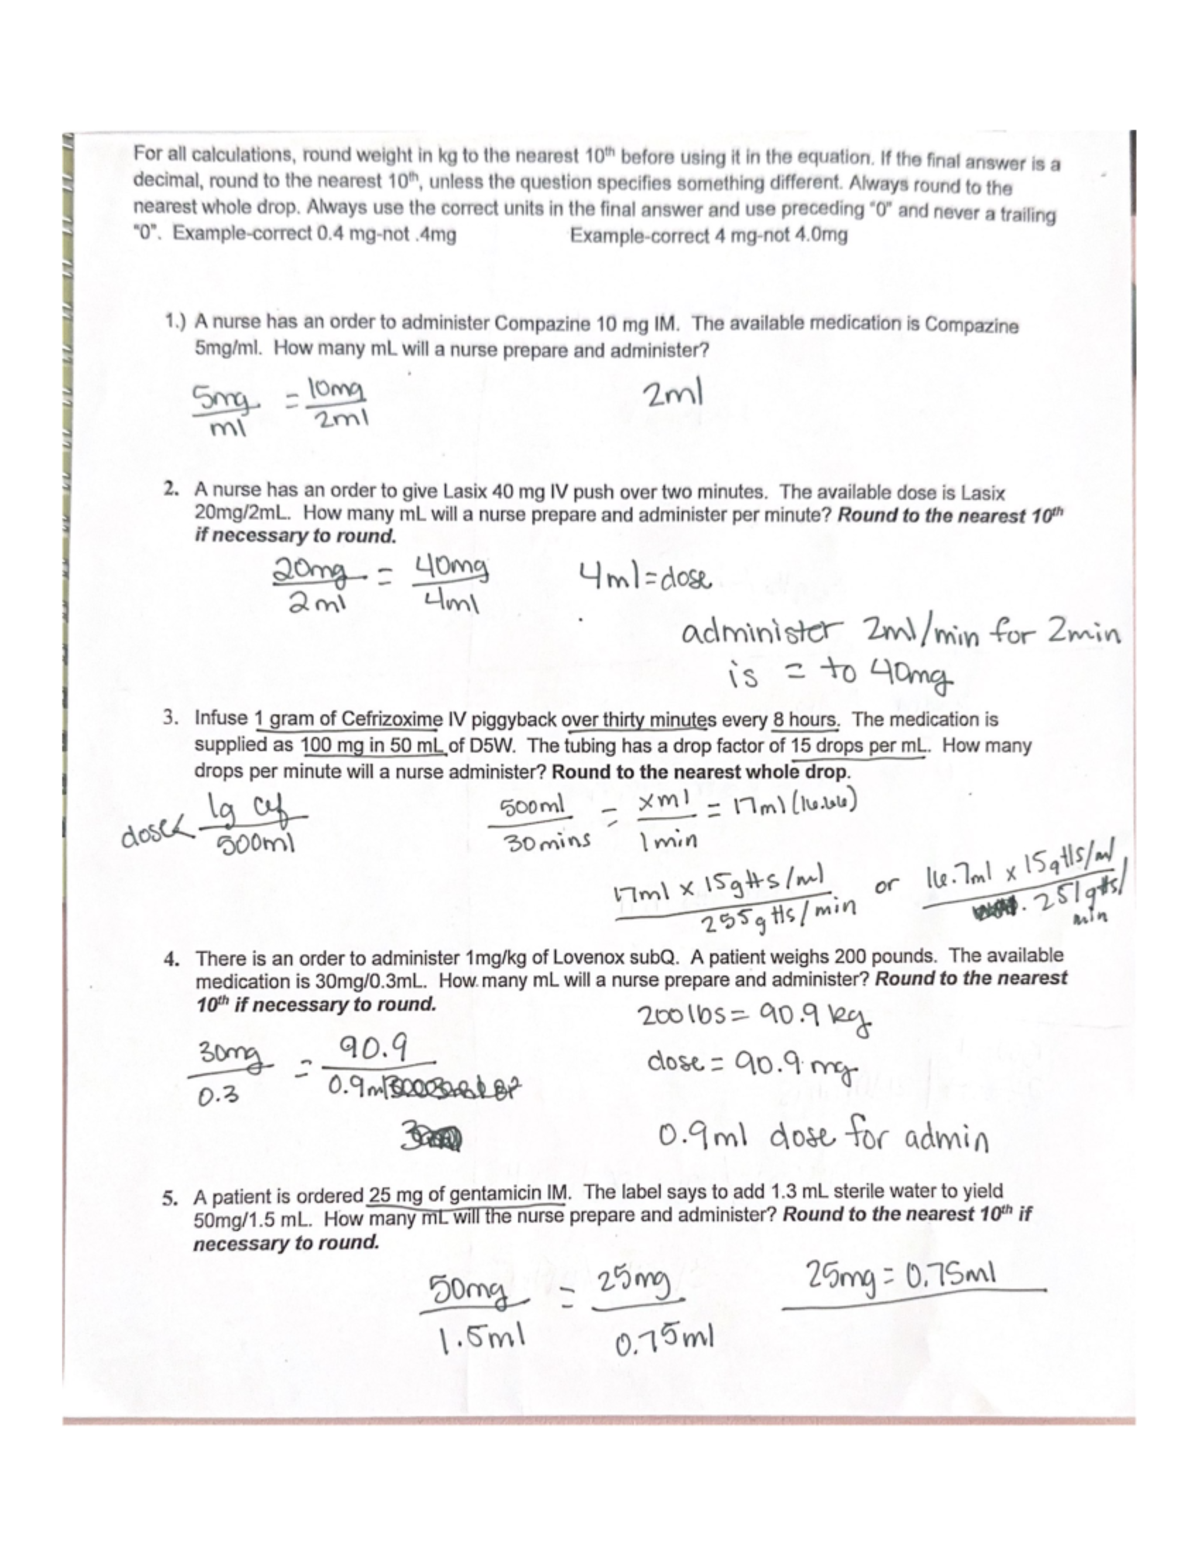 For all calculations, round weight in kg to the nearest 10th before using it in the equation. If the final answer is a
decimal, round to the nearest 10th, unless the question specifies something different. Always round to the
nearest whole drop. Always use the correct units in the final answer and use preceding "0" and never a trailing
"0". Example-correct 0.4 mg-not .4mg Example-correct 4 mg-not 4.0mg
1.) A nurse has an order to administer Compazine 10 mg IM. The available medication is Compazine
5mg/ml. How many mL will a nurse prepare and administer?
5mg = 10mg 2ml
ml 2ml
2. A nurse has an order to give Lasix 40 mg IV push over two minutes. The available dose is Lasix
20mg/2mL. How many mL will a nurse prepare and administer per minute? Round to the nearest 10th
if necessary to round.
20mg = 40mg 4ml=dose
2ml 4ml
administer 2ml/min for 2min
is = to 40mg
3. Infuse 1 gram of Cefrizoxime IV piggyback over thirty minutes every 8 hours. The medication is
supplied as 100 mg in 50 mL of D5W. The tubing has a drop factor of 15 drops per mL. How many
drops per minute will a nurse administer? Round to the nearest whole drop.
dose< 1g cef 500ml = xml = 17ml (16.66)
500ml 30mins 1min
17ml x 15gtts/ml or 16.7ml x 15gtts/ml
255gtts/min . 251gtts/
min
4. There is an order to administer 1mg/kg of Lovenox subQ. A patient weighs 200 pounds. The available
medication is 30mg/0.3mL. How many mL will a nurse prepare and administer? Round to the nearest
10th if necessary to round.
200lbs = 90.9 kg
30mg = 90.9 dose = 90.9 mg
0.3 0.9ml
3
0.9ml dose for admin
5. A patient is ordered 25 mg of gentamicin IM. The label says to add 1.3 mL sterile water to yield
50mg/1.5 mL. How many mL will the nurse prepare and administer? Round to the nearest 10th if
necessary to round.
50mg = 25mg 25mg = 0.75ml
1.5ml 0.75ml